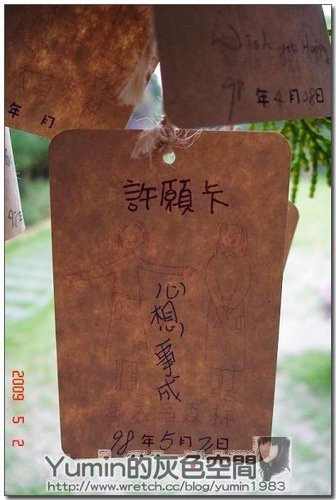 Wish you Happy
年 月
98 年 4 月 18 日
98
許願卡
心想事成
森林
98 年 5 月 2 日
2009 5 2
Yumin的灰色空間
http://www.wretch.cc/blog/yumin1983